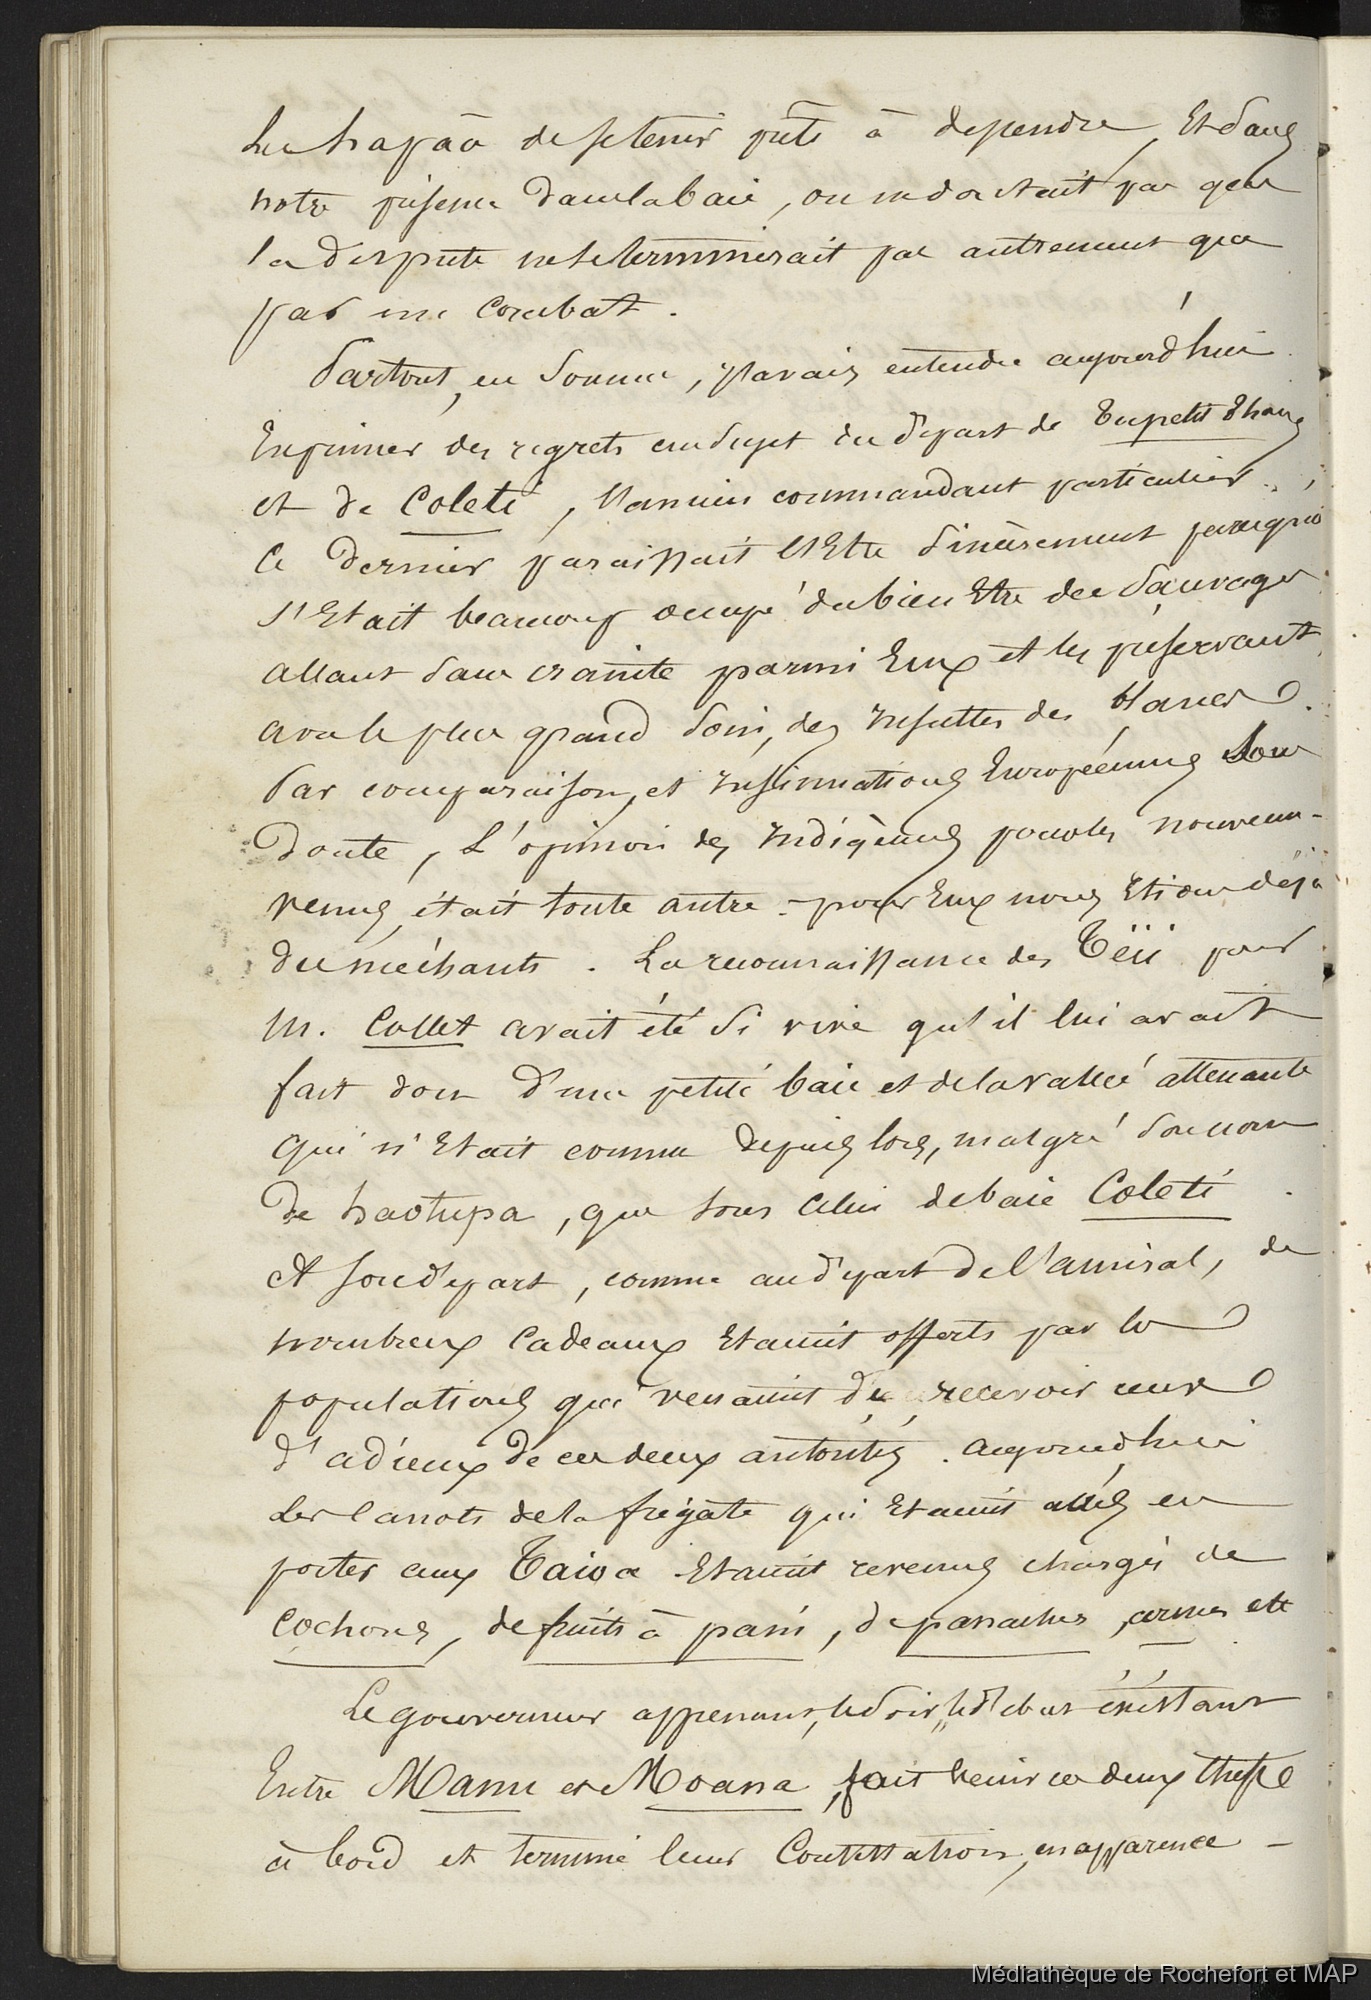 les hapaâ de se tenir prêts à descendre Et sans
notre présence dans la baie, on ne doutait pas que
la dispute ne se terminerait pas autrement que
par un combat.
Partout, en somme, j'avais entendu aujourd'hui
Exprimer des regrets au sujet du départ de Tupetit Thouars
et de Coleté, l'ancien commandant particulier.
Ce dernier paraissait l'Etre sincèrement parcequ'il
s'Etait beaucoup occupé du bien Etre des Sauvages
allant sans crainte parmi Eux et les préservant
avec le plus grand soin, des insultes des blancs.
Par comparaison, et insinuations Européennes sans
doute, l'opinion des indigènes pour les nouveaux-
venus, était toute autre - pour Eux nous Etions déjà
des méchants. La reconnaissance des Téii pour
M. Collet avait été si vive qu'il lui avait
fait don d'une petite baie et de la vallée attenante
qui n'Etait connue depuis lors, malgré son nom
de haotupa, que sous celui de baie Coleté.
A son départ, comme au départ de l'amiral, de
nombreux Cadeaux Etaient offerts par les
populations qui venaient de recevoir ceux
d'adieux de ces deux autorités. aujourd'hui
les Canots de la frégate qui Etaient allés en
porter aux Taioa Etaient revenus chargés de
cochons, de fruits à pain, de panaches, armes etc
Le gouverneur apprenant, le soir, le débat existant
Entre Mamu et Moana, fait venir ces deux chefs
à bord et termine leur Contestation, en apparence -
Médiathèque de Rochefort et MAP